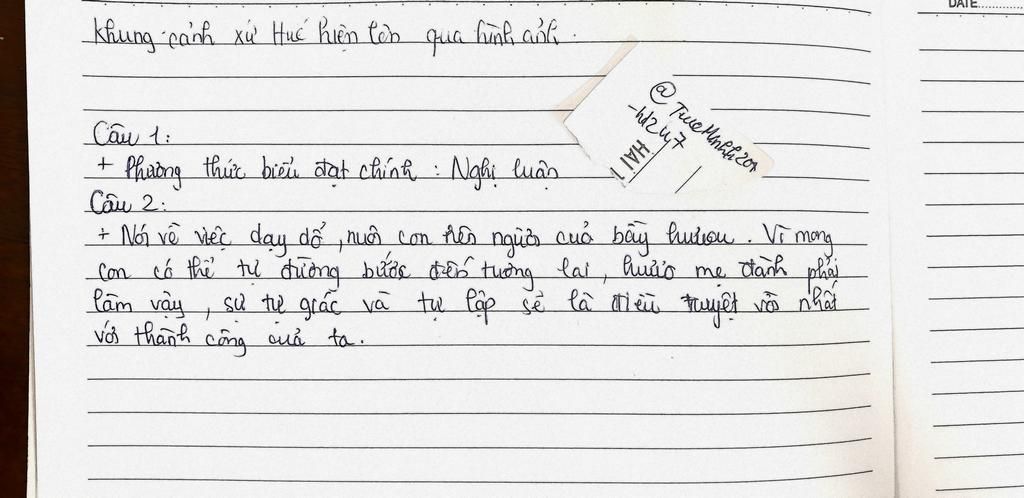 DATE
khung cảnh xứ Huế hiện lên qua hình ảnh.
@TrucMinhh201
-hd247
HAI!
Câu 1:
+ Phương thức biểu đạt chính : Nghị luận
Câu 2:
+ Nói về việc dạy dổ, nuôi con nên người cuả bầy hươu. Vì mong
con có thể tự đường bước đến tương lai, hươu mẹ đành phải
làm vậy, sự tự giác và tự lập sẽ là điều tuyệt vời nhất
với thành công cuả ta.